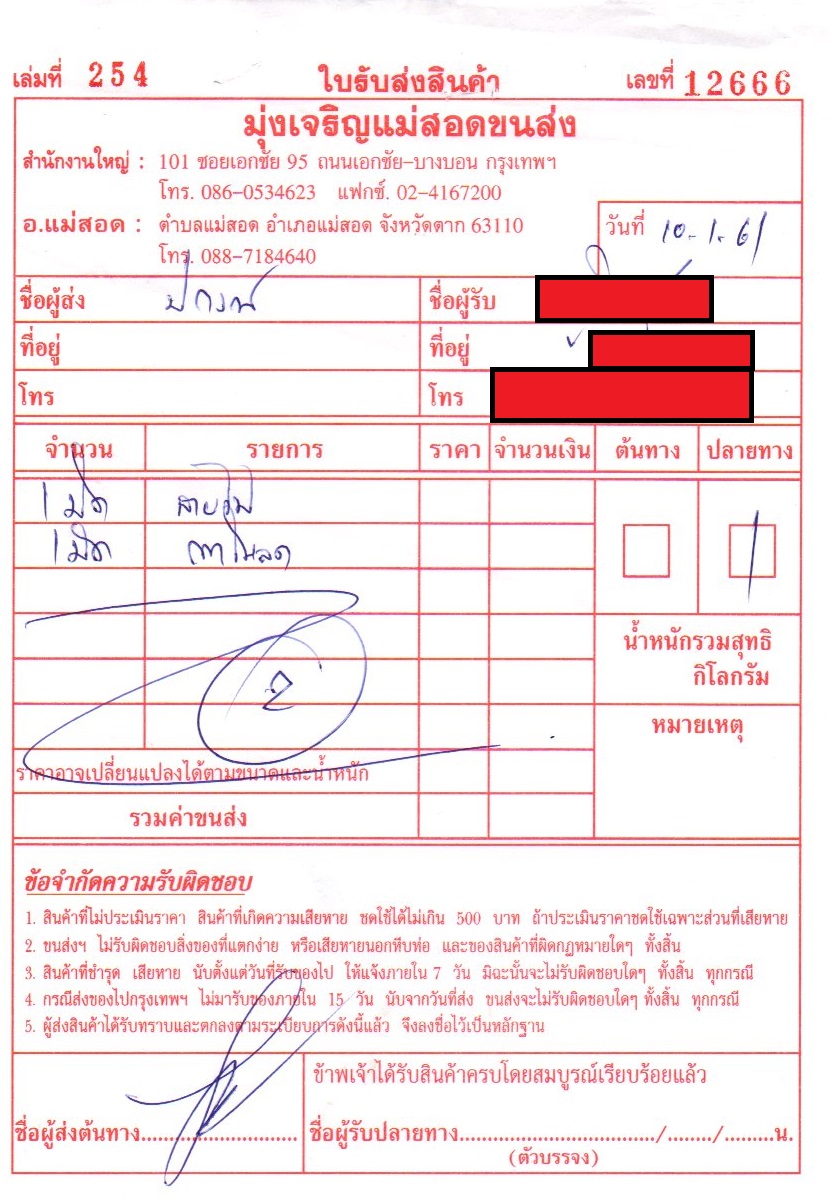 เล่มที่ 254 ใบรับส่งสินค้า เลขที่ 12666
มุ่งเจริญแม่สอดขนส่ง
สำนักงานใหญ่ : 101 ซอยเอกชัย 95 ถนนเอกชัย-บางบอน กรุงเทพฯ
โทร. 086-0534623 แฟกซ์. 02-4167200
อ.แม่สอด : ตำบลแม่สอด อำเภอแม่สอด จังหวัดตาก 63110
วันที่ 10-1-61
โทร. 088-7184640
ชื่อผู้ส่ง ชื่อผู้รับ
ที่อยู่ ที่อยู่
โทร โทร
จำนวน รายการ ราคา จำนวนเงิน ต้นทาง ปลายทาง
1 มัด
1 มัด
น้ำหนักรวมสุทธิ
กิโลกรัม
2
หมายเหตุ
ราคาอาจเปลี่ยนแปลงได้ตามขนาดและน้ำหนัก
รวมค่าขนส่ง
ข้อจำกัดความรับผิดชอบ
1. สินค้าที่ไม่ประเมินราคา สินค้าที่เกิดความเสียหาย ชดใช้ได้ไม่เกิน 500 บาท ถ้าประเมินราคาชดใช้เฉพาะส่วนที่เสียหาย
2. ขนส่งฯ ไม่รับผิดชอบสิ่งของที่แตกง่าย หรือเสียหายนอกหีบห่อ และของสินค้าที่ผิดกฎหมายใดๆ ทั้งสิ้น
3. สินค้าที่ชำรุด เสียหาย นับตั้งแต่วันที่รับของไป ให้แจ้งภายใน 7 วัน มิฉะนั้นจะไม่รับผิดชอบใดๆ ทั้งสิ้น ทุกกรณี
4. กรณีส่งของไปกรุงเทพฯ ไม่มารับของภายใน 15 วัน นับจากวันที่ส่ง ขนส่งจะไม่รับผิดชอบใดๆ ทั้งสิ้น ทุกกรณี
5. ผู้ส่งสินค้าได้รับทราบและตกลงตามระเบียบการดังนี้แล้ว จึงลงชื่อไว้เป็นหลักฐาน
ข้าพเจ้าได้รับสินค้าครบโดยสมบูรณ์เรียบร้อยแล้ว
ชื่อผู้ส่งต้นทาง.......................... ชื่อผู้รับปลายทาง................................./......../.........น.
(ตัวบรรจง)